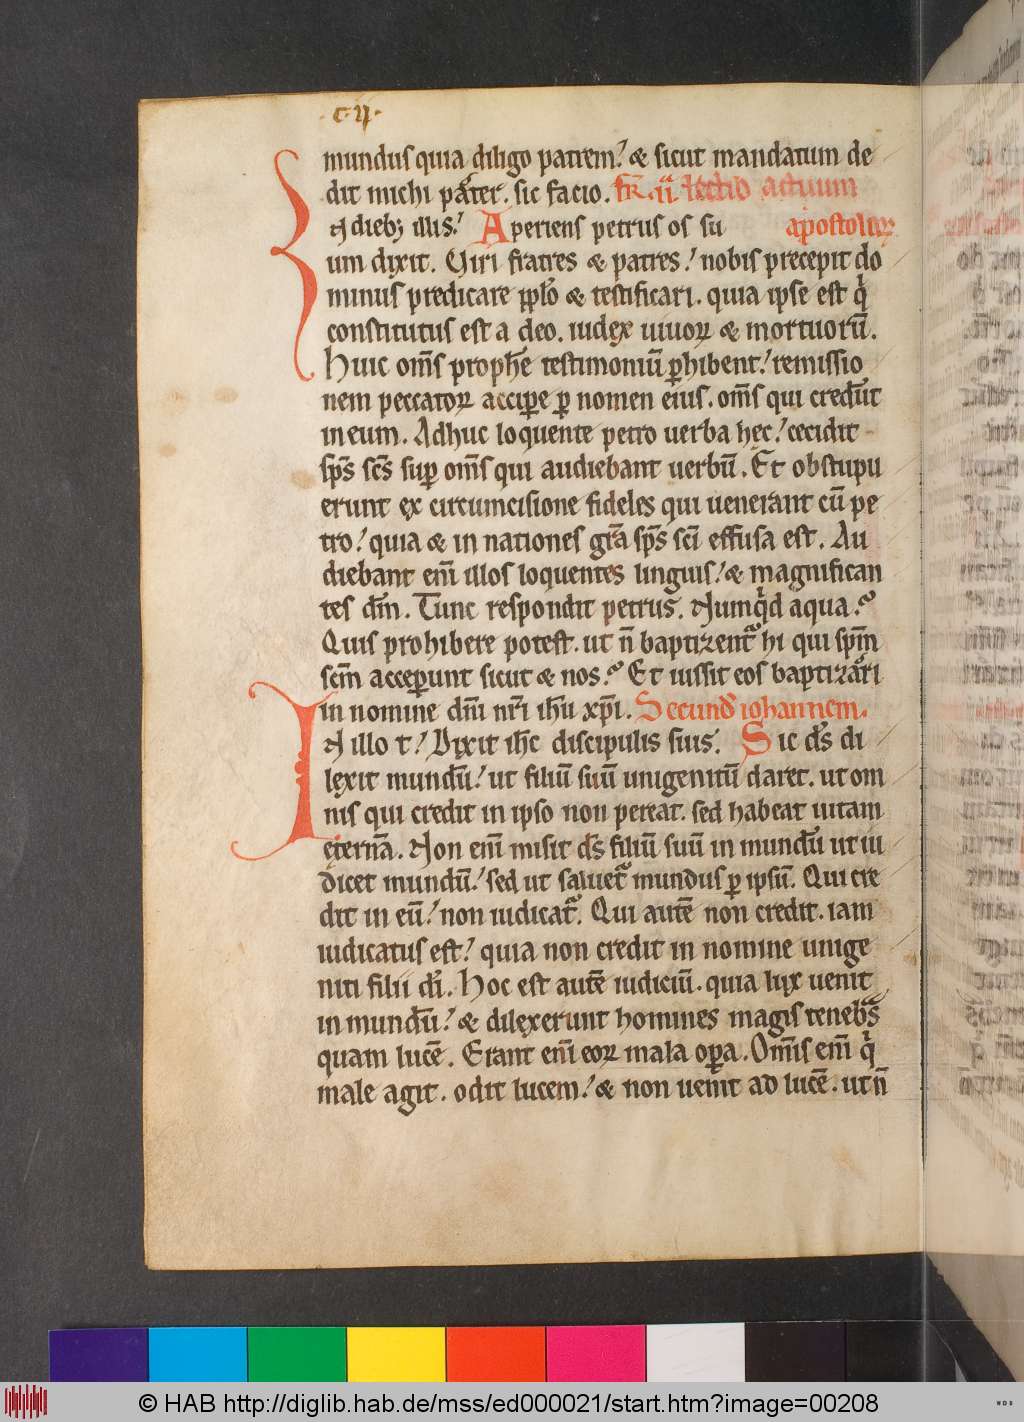 ·c·ij·
mundus quia diligo patrem. & sicut mandatum de
dit michi pater. sic facio. Fr̄ ·ii· Lectio actuum
IN dieb; illis. Aperiens petrus os su apostoloꝝ
um dixit. Viri fratres & patres. nobis precepit do
minus predicare pplo & testificari. quia ipse est q̇
constitutus est a deo. iudex uiuoꝝ & mortuorū.
Huic om̄s prophe testimoniū ꝑhibent. remissio
nem peccatoꝝ accipe ꝑ nomen eius. om̄s qui credunt
in eum. Adhuc loquente petro uerba hec. cecidit
sp̄s sc̄s suꝑ om̄s qui audiebant uerbū. Et obstupu
erunt ex circumcisione fideles qui uenerant cū pe
tro. quia & in nationes gr̄a sp̄s sc̄i effusa est. Au
diebant enī illos loquentes linguis. & magnifican
tes dm̄. Tunc respondit petrus. Numqd aqua.
Quis prohibere potest. ut n̄ baptizent hi qui spm̄
scm̄ acceꝑunt sicut & nos. Et iussit eos baptizari
in nomine dn̄i nr̄i ih̄u xp̄i. Secund iohannem.
IN illo t̄. Dixit ih̄c discipulis suis. Sic ds di
lexit mundū. ut filiū suū unigenitū daret. ut om
nis qui credit in ipso non pereat. sed habeat uitam
eternā. Non enī misit ds filiū suū in mundū ut iu
dicet mundū. sed ut saluet mundus ꝑ ipsū. Qui cre
dit in eū. non iudicat. Qui autē non credit. iam
iudicatus est. quia non credit in nomine unige
niti filii di. Hoc est autē iudiciū. quia lux uenit
in mundū. & dilexerunt homines magis tenebs
quam lucē. Erant enī eoꝝ mala oꝑa. Omis enī q̇
male agit. odit lucem. & non uenit ad lucē. ut n̄
© HAB http://diglib.hab.de/mss/ed000021/start.htm?image=00208